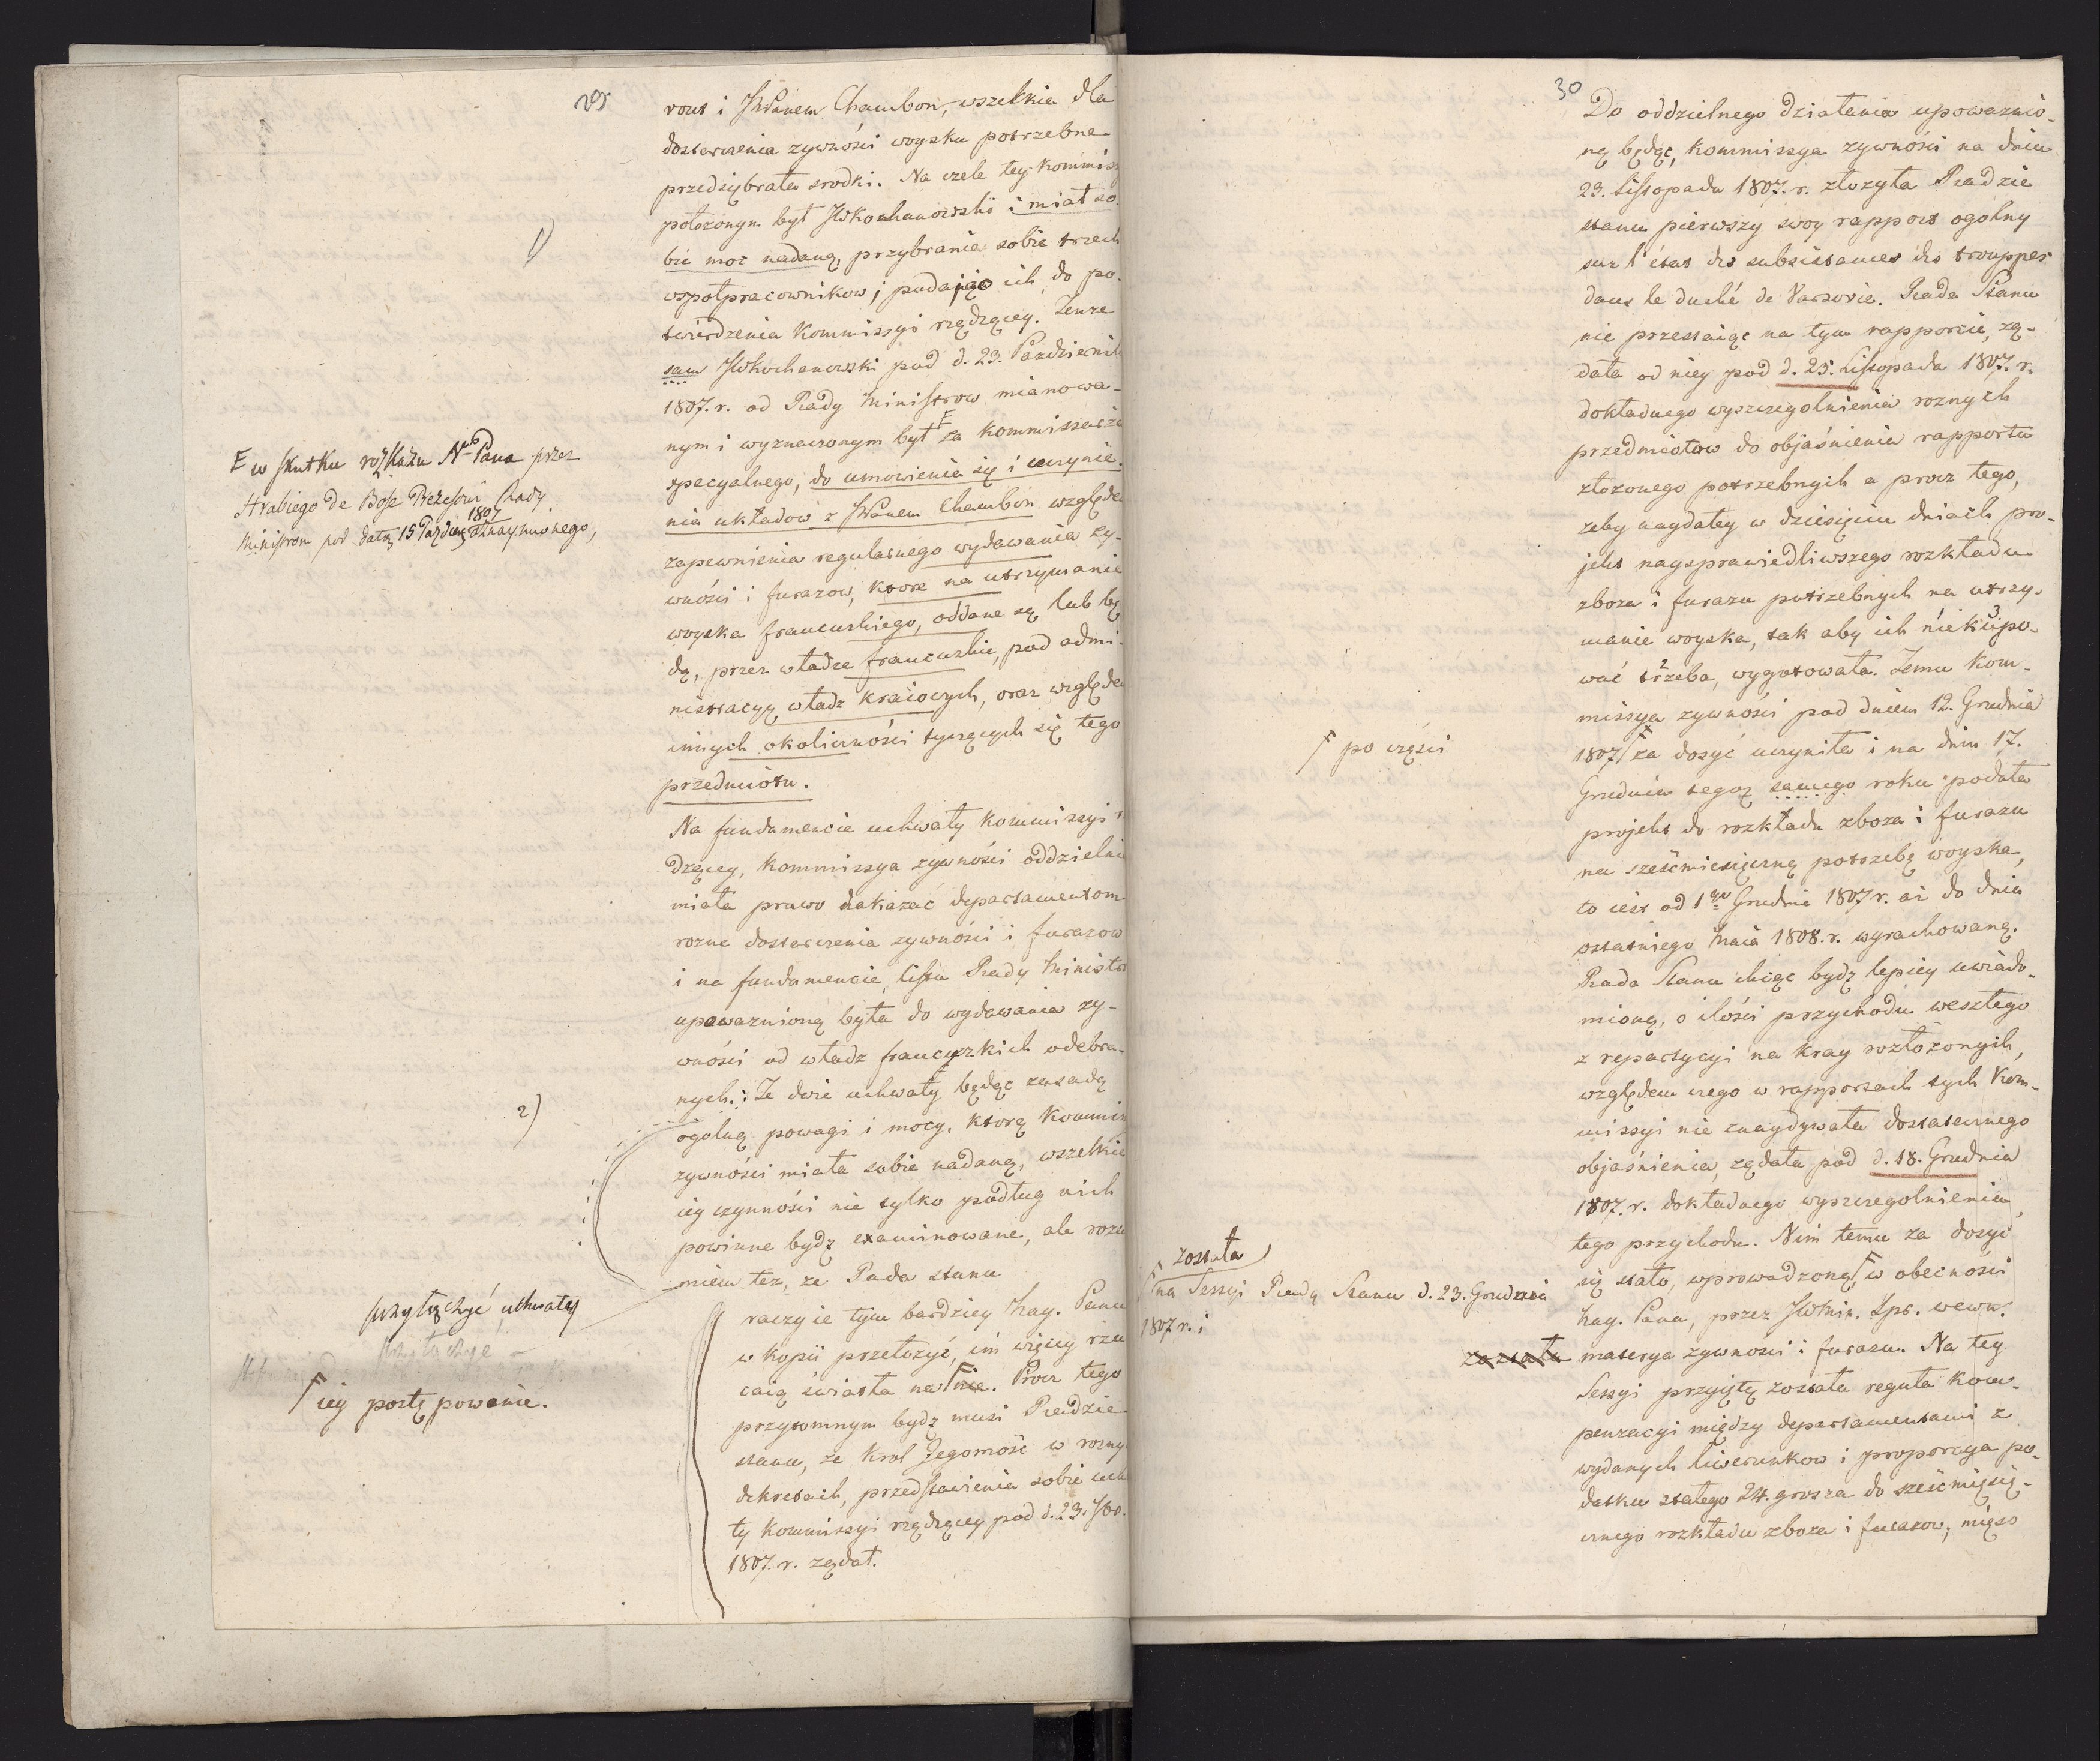 29
rous i JWPanem Chambon, wszelkie dla
dostarczenia zywności woysku potrzebne
przedsiębrała srodki. Na czele tey Kommiss
połozonym był JWKochanowski i miał so-
1)
bie moc nadaną, przybrania sobie trzech
wspołpracownikow, podając ich do po-
twierdzenia Kommissyi rządzącey. Tenze
sam JWKochanowski pod d. 23. Pazdziernik
1807. r. od Rady Ministrow mianowa-
nym i wyznaczonym był F za Kommissarza
F w skutku rozkazu N. Pana przez
Hrabiego de Bose Prezesowi Rady
Ministrow pod datą 15 Pazdz. 1807 oznaymionego,
specyalnego, do umowienia się i uczynie-
nia układow z JWPanem Chambon względe
zapewnienia regularnego wydawania zy-
wności i furazow, ktore na utrzymanie
woyska francuskiego, oddane są lub bę
dą, przez władze francuzkie, pod admi-
nistracyą władz kraiowych, oraz względe
innych okoliczności tyczących się tego
przedmiotu.
Na fundamencie uchwały Kommissyi r
dzącey, Kommissya zywności oddzielni
miała prawo nakazać departamentom
rozne dostarczenia zywności i furazow
i na fundamencie listu Rady Ministr
upowaznioną była do wydawania zy-
wności od władz francuzkich odebra-
nych. Te dwie uchwały będąc zasadą
2)
ogolną powagi i mocy, ktorą Kommis
zywności miała sobie nadaną, wszelkie
iey czynności nie tylko podług nich
powinne bydz examinowane, ale rozu
miem tez, ze Rada stanu
przyłączyć uchwały
przyłączyć
raczy ie tym bardziey Nay. Panu
w kopii przełozyć, im więcey rzu
caią światła na F nie. Procz tego
F iey postępowanie.
przytomnym bydz musi Radzie
stanu, ze Krol Jegomość w rozny
dekretach, przedstawienia sobie uch
ty Kommissyi rządzącey pod d. 23.
1807. r. ządał.
30
Do oddzielnego działania upowaznio-
ną będąc, Kommissya zywności na dniu
23. Listopada 1807. r. złozyła Radzie
stanu pierwszy swoy rapport ogolny
sur l'état des subsistances des trouppes
dans le duché de Varsovie. Rada Stanu
nie przestaiąc na tym rapporcie, zą-
dała od niey pod d. 25. Listopada 1807. r.
dokładnego wyszczegolnienia roznych
przedmiotow do objaśnienia rapportu
złozonego potrzebnych a procz tego,
zeby naydaley w dziesięciu dniach pro-
jekt naysprawiedliwszego rozkładu
zboza i furazu potrzebnych na utrzy-
manie woyska, tak aby ich nie kupo-
wać trzeba, wygotowała. Temu Kom-
missya zywności pod dniem 12. Grudnia
1807 F za dosyć uczyniła i na dniu 17.
F po części
Grudnia tegoz samego roku podała
projekt do rozkładu zboza i furazu
na sześciomiesięczną potrzebę woyska,
to iest od 1go Grudnia 1807 r. az do dnia
ostatniego Maia 1808. r. wyrachowaną.
Rada Stanu chcąc bydz lepiey uwiado-
mioną, o ilości przychodu weszłego
z repartycyi na kray rozłozonych,
względem czego w rapportach tych Kom-
missyi nie znaydywała dostatecznego
objaśnienia, ządała pod d. 18. Grudnia
1807. r. dokładnego wyszczegolnienia
tego przychodu. Nim temu za dosyć
się stało, wprowadzoną F w obecności
F została
na Sessyi Rady Stanu d. 23. Grudnia
1807 r. i
Nay. Pana, przez JWMin. Spr. wewn.
została materya zywności i furazu. Na tey
Sessyi przyiętą została reguła Kom-
penzacyi między departamentami z
wydanych liwerunkow i proporcya po-
datku stałego 24. grosza do sześciomięsię-
cznego rozkładu zboza i furazow, mięso